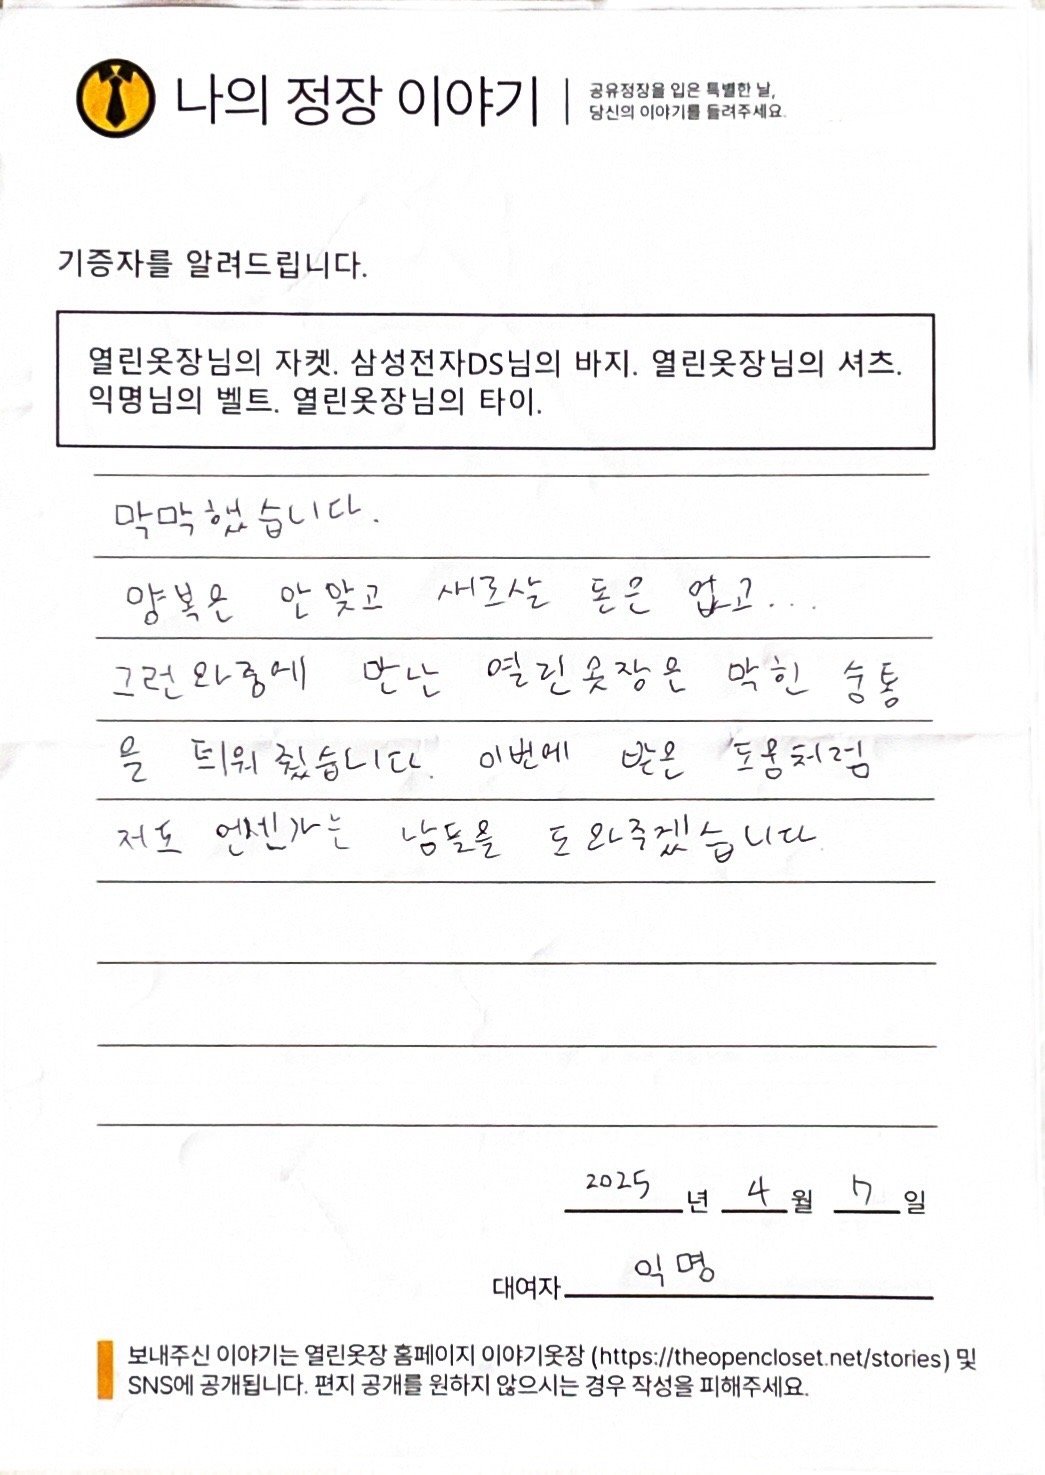 나의 정장 이야기
공유정장을 입은 특별한 날,
당신의 이야기를 들려주세요.
기증자를 알려드립니다.
열린옷장님의 자켓. 삼성전자DS님의 바지. 열린옷장님의 셔츠.
익명님의 벨트. 열린옷장님의 타이.
막막했습니다.
양복은 안맞고 새로살 돈은 없고...
그런와중에 만난 열린옷장은 막힌 숨통
을 틔워줬습니다. 이번에 받은 도움처럼
저도 언젠가는 남들을 도와주겠습니다.
2025 년 4 월 7 일
대여자 익명
보내주신 이야기는 열린옷장 홈페이지 이야기옷장 (https://theopencloset.net/stories) 및
SNS에 공개됩니다. 편지 공개를 원하지 않으시는 경우 작성을 피해주세요.